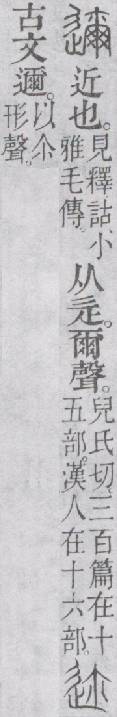 邇近也。見釋詁小雅毛傳。从辵。爾聲。兒氏切。三百篇在十五部。漢人在十六部。迩
古文邇。以尒形聲。